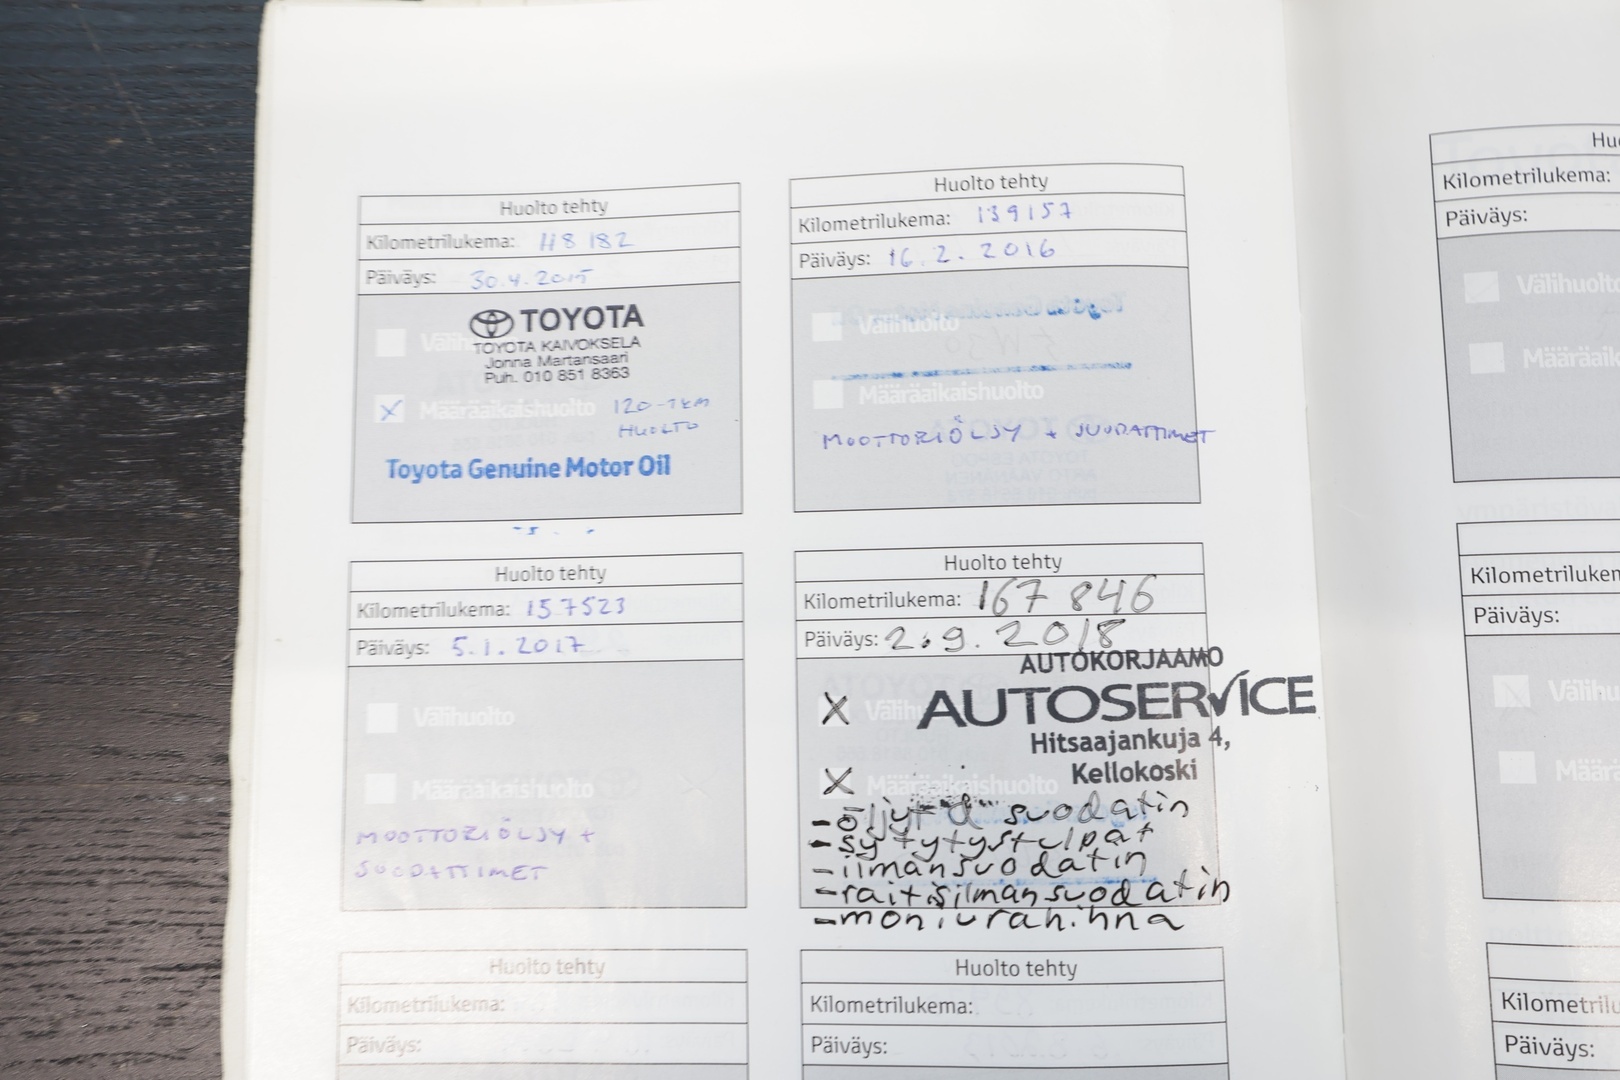 Huolto tehty
Kilometrilukema: 118 182
Päiväys: 30.4.2015
TOYOTA
TOYOTA KAIVOKSELA
Jonna Martansaari
Puh. 010 851 8363
Määräaikaishuolto 120-TKM
HUOLTO
Toyota Genuine Motor Oil
Huolto tehty
Kilometrilukema: 139157
Päiväys: 16.2.2016
Välihuolto
Määräaikaishuolto
MOOTTORIÖLJY + SUODATTIMET
Huolto tehty
Kilometrilukema: 157523
Päiväys: 5.1.2017
Välihuolto
Määräaikaishuolto
MOOTTORIÖLJY +
SUODATTIMET
Huolto tehty
Kilometrilukema: 167 846
Päiväys: 2.9.2018
AUTOKORJAAMO
X AUTOSERVICE
Hitsaajankuja 4,
Kellokoski
X Määräaikaishuolto
- öljyt & suodatin
- sytytystulpat
- ilmansuodatin
- raitisilmansuodatin
- moniurahihna
Huolto tehty
Kilometrilukema:
Päiväys:
Huolto tehty
Kilometrilukema:
Päiväys:
Kilometrilukema:
Päiväys:
Välihuolto
Päiväys:
Päiväys: